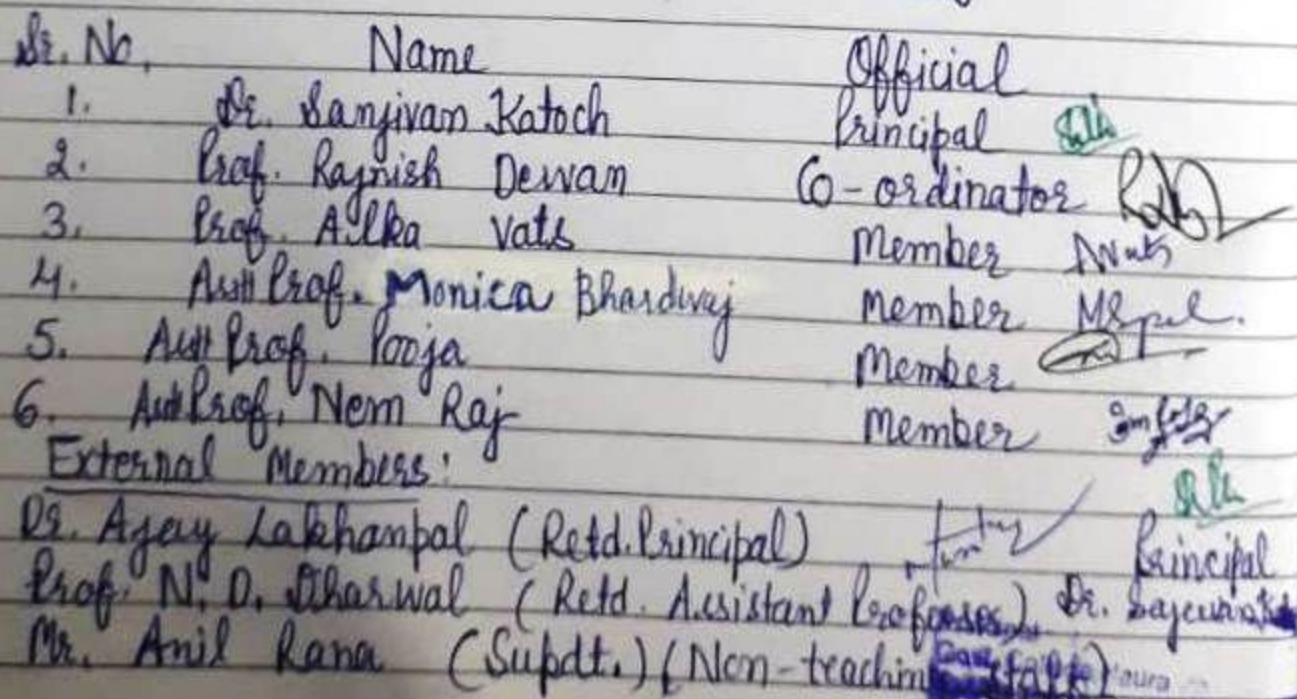 Sr. No. Name Official
1. Dr. Sanjivan Katoch Principal
2. Prof. Rajnish Dewan Co-ordinator
3. Prof. Alka Vats Member AVats
4. Asstt Prof. Monica Bhardwaj Member
5. Asstt Prof. Pooja Member
6. Asstt Prof. Nem Raj Member
External Members:
Dr. Ajay Lakhanpal (Retd. Principal) Principal
Prof. N. D. Dharwal (Retd. Assistant Professor) Dr.
Mr. Anil Rana (Supdt.) (Non-teaching staff)